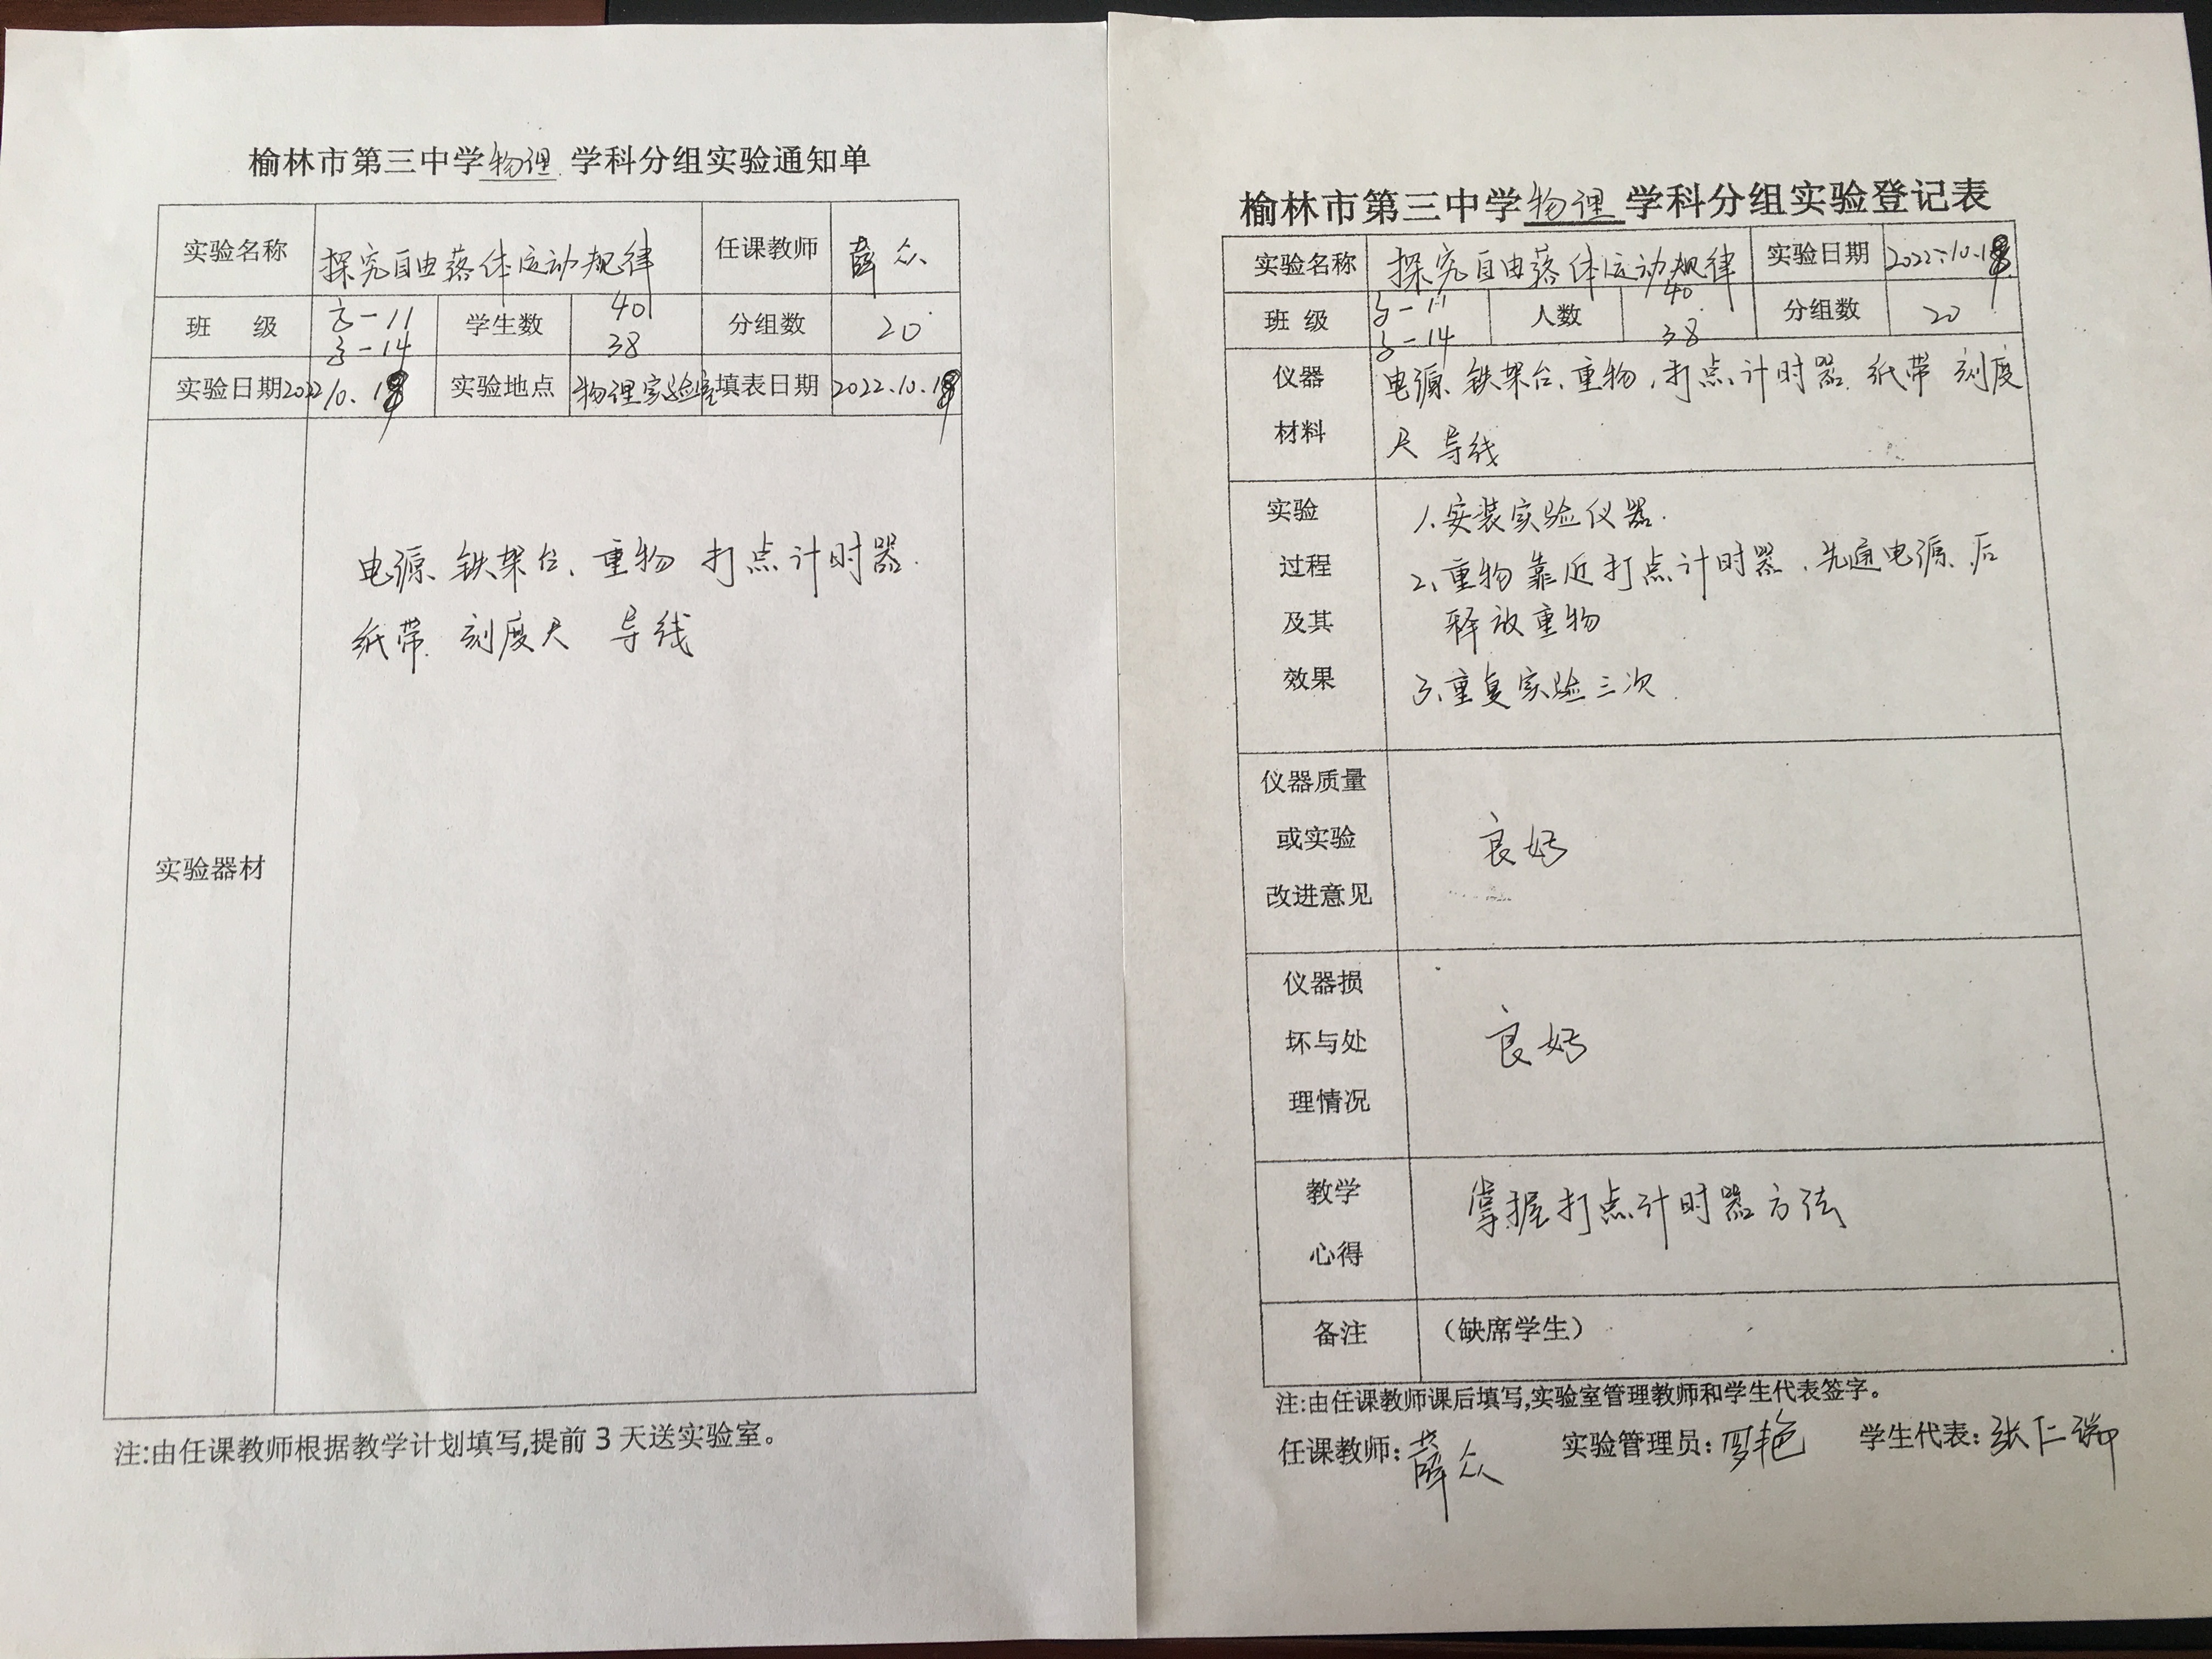 榆林市第三中学物理 学科分组实验通知单
实验名称 探究自由落体运动规律 任课教师 薛众
班 级 高一11 高一14 学生数 40 38 分组数 20
实验日期 2022.10.18 实验地点 物理实验室 填表日期 2022.10.18
实验器材
电源、铁架台、重物 打点计时器.
纸带. 刻度尺 导线
注:由任课教师根据教学计划填写,提前3天送实验室。
榆林市第三中学物理 学科分组实验登记表
实验名称 探究自由落体运动规律 实验日期 2022.10.18
班 级 高一11 高一14 人数 40 38 分组数 20
仪器 电源、铁架台、重物,打点计时器 纸带 刻度
材料 尺 导线
实验 1、安装实验仪器.
过程 2、重物靠近打点计时器,先通电源、后
及其 释放重物
效果 3、重复实验三次.
仪器质量
或实验 良好
改进意见
仪器损
坏与处 良好
理情况
教学 掌握打点计时器方法
心得
备注 (缺席学生)
注:由任课教师课后填写,实验室管理教师和学生代表签字。
任课教师:薛众 实验管理员:罗艳 学生代表:张仁